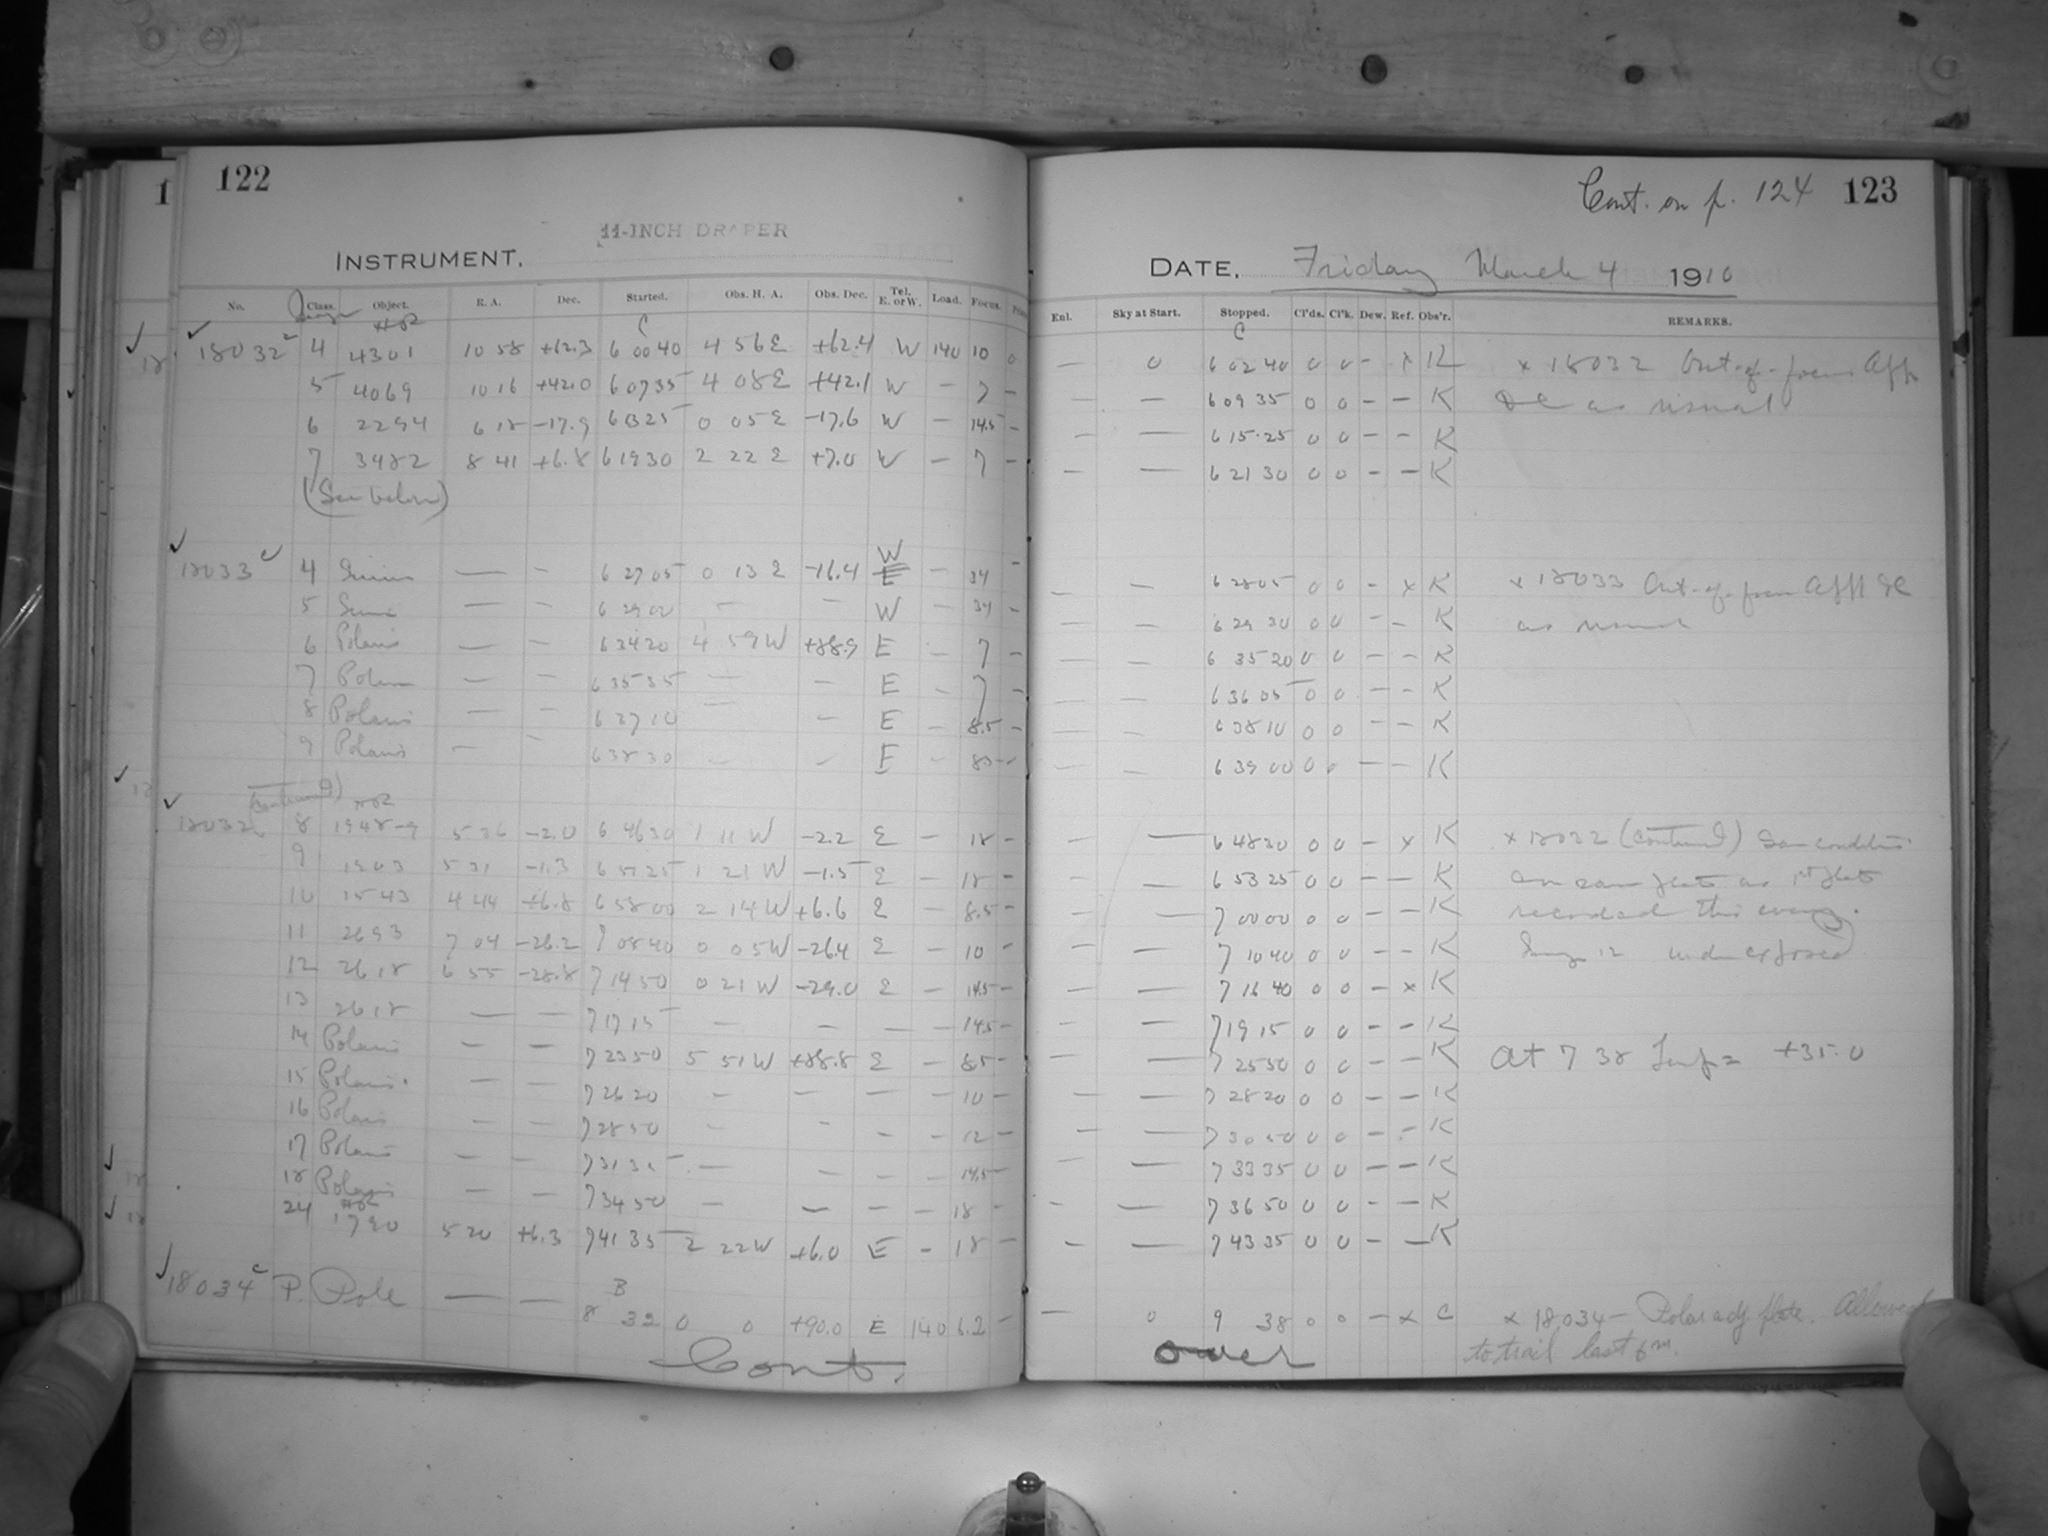 122
11-INCH DRAPER
INSTRUMENT.
No. Class. Object. R. A. Dec. Started. Obs. H. A. Obs. Dec. Tel. E. or W. Load. Focus.
Image HR C
18032 4 4301 10 58 +62.3 6 00 40 4 56 E +62.4 W 140 10 0
5 4069 10 16 +42.0 6 07 35 4 08 E +42.1 W — 7 —
6 2294 6 18 -17.9 6 13 25 0 05 E -17.6 W — 14.5 —
7 3482 8 41 +6.8 6 19 30 2 22 E +7.0 W — 7 —
(See below)
18033 4 Sirius — — 6 27 05 0 13 E -16.4 W E — 34 —
5 Sirius — — 6 29 00 — — W — 34 —
6 Polaris — — 6 34 20 4 59 W +88.9 E — 7 —
7 Polaris — — 6 35 35 — — E — 7 —
8 Polaris — — 6 37 10 — E — 8.5 —
9 Polaris — — 6 38 30 — — E —
(Continued) HR
18032 8 1948-9 5 36 -2.0 6 46 30 1 11 W -2.2 E — 18 —
9 1903 5 31 -1.3 6 51 25 1 21 W -1.5 E — 18 —
10 1543 4 44 +6.8 6 58 00 2 14 W +6.6 E — 8.5 —
11 2693 7 04 -26.2 7 08 40 0 05 W -26.4 E — 10 —
12 2618 6 55 -28.8 7 14 50 0 21 W -29.0 E — 14.5 —
13 2618 — — 7 17 15 — — — — 14.5 —
14 Polaris — — 7 23 50 5 51 W +88.8 E — 8.5 —
15 Polaris — — 7 26 20 — — — — 10 —
16 Polaris — — 7 28 50 — — — — 12 —
17 Polaris — — 7 31 35 — — — — 14.5 —
18 Polaris — — 7 34 50 — — — — 18 —
HR
24 1790 5 20 +6.3 7 41 35 2 22 W +6.0 E — 18 —
B
18034 P. Pole — — 8 32 0 0 +90.0 E 140 6.2 —
Cont.
Cont. on p. 124 123
DATE. Friday March 4 1910
Enl. Sky at Start. Stopped. Cl'ds. Cl'k. Dew. Ref. Obs'r. REMARKS.
C
— 0 6 02 40 0 0 — x K x 18032 Out-of-focus Aff
— — 6 09 35 0 0 — — K DC as usual
— — 6 15 25 0 0 — — K
— — 6 21 30 0 0 — — K
— — 6 28 05 0 0 — x K x 18033 Out-of-focus Aff DC
— — 6 29 30 0 0 — — K as usual
— — 6 35 20 0 0 — — K
— — 6 36 05 0 0 — — K
— — 6 38 10 0 0 — — K
— — 6 39 00 0 0 — — K
— — 6 48 30 0 0 — x K x 18032 (Continued) Same conditions
— — 6 53 25 0 0 — — K on same plate as 1st plate
— — 7 00 00 0 0 — — K recorded this evening.
— — 7 10 40 0 0 — — K Image 12 underexposed
— — 7 16 40 0 0 — x K
— — 7 19 15 0 0 — — K
— — 7 25 50 0 0 — — K At 7 38 Temp = +35.0
— — 7 28 20 0 0 — — K
— — 7 30 50 0 0 — — K
— — 7 33 35 0 0 — — K
— — 7 36 50 0 0 — — K
— — 7 43 35 0 0 — — K
— 0 9 38 0 0 — x C x 18034 — Polar adj. plate. Allowed
over to trail last 6m.